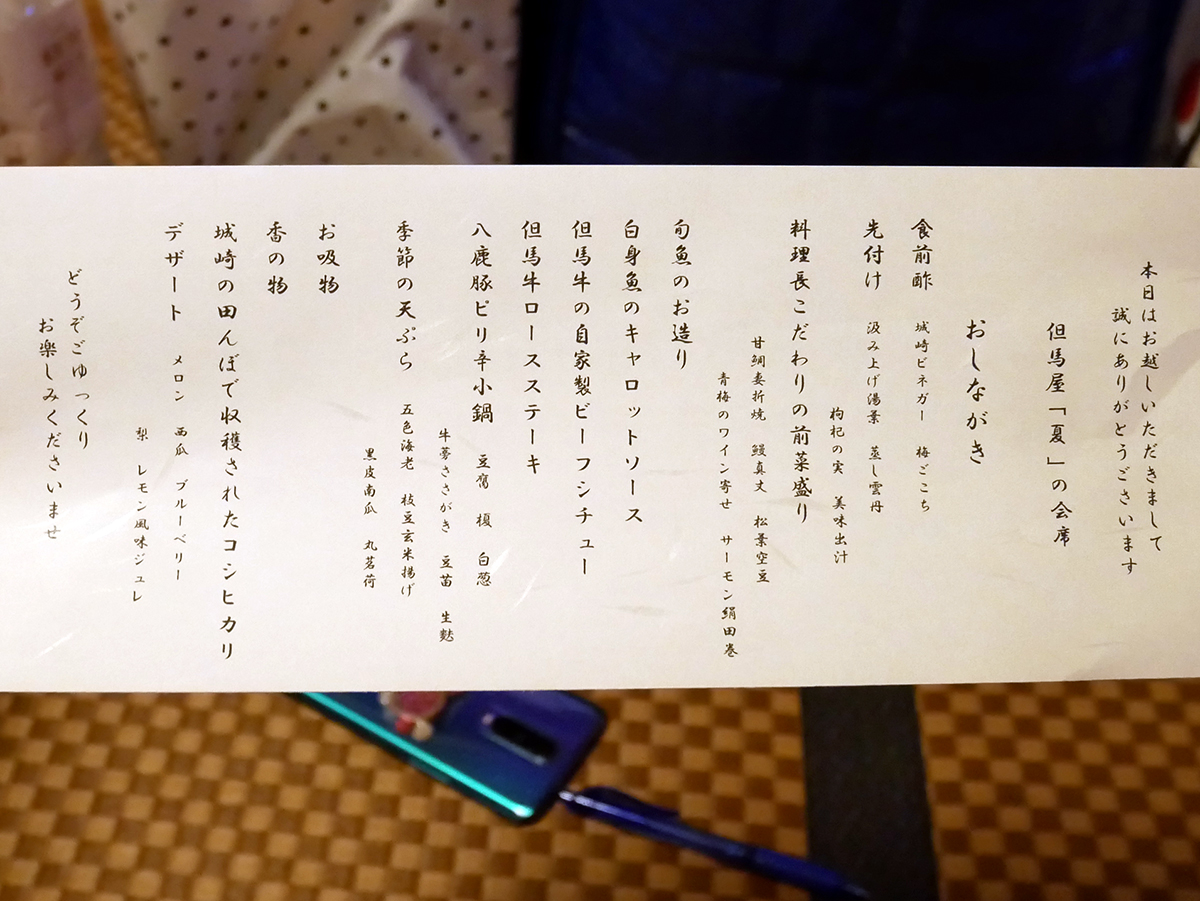 本日はお越しいただきまして
誠にありがとうございます
但馬屋「夏」の会席
おしながき
食前酢 城崎ビネガー 梅ごこち
先付け 汲み上げ湯葉 蒸し雲丹
枸杞の実 美味出汁
料理長こだわりの前菜盛り
甘鯛妻折焼 鰻真丈 松葉空豆
青梅のワイン寄せ サーモン絹田巻
旬魚のお造り
白身魚のキャロットソース
但馬牛の自家製ビーフシチュー
但馬牛ロースステーキ
八鹿豚ピリ辛小鍋 豆腐 榎 白葱
牛蒡ささがき 豆苗 生麩
季節の天ぷら 五色海老 枝豆玄米揚げ
黒皮南瓜 丸茗荷
お吸物
香の物
城崎の田んぼで収穫されたコシヒカリ
デザート メロン 西瓜 ブルーベリー
梨 レモン風味ジュレ
どうぞごゆっくり
お楽しみくださいませ